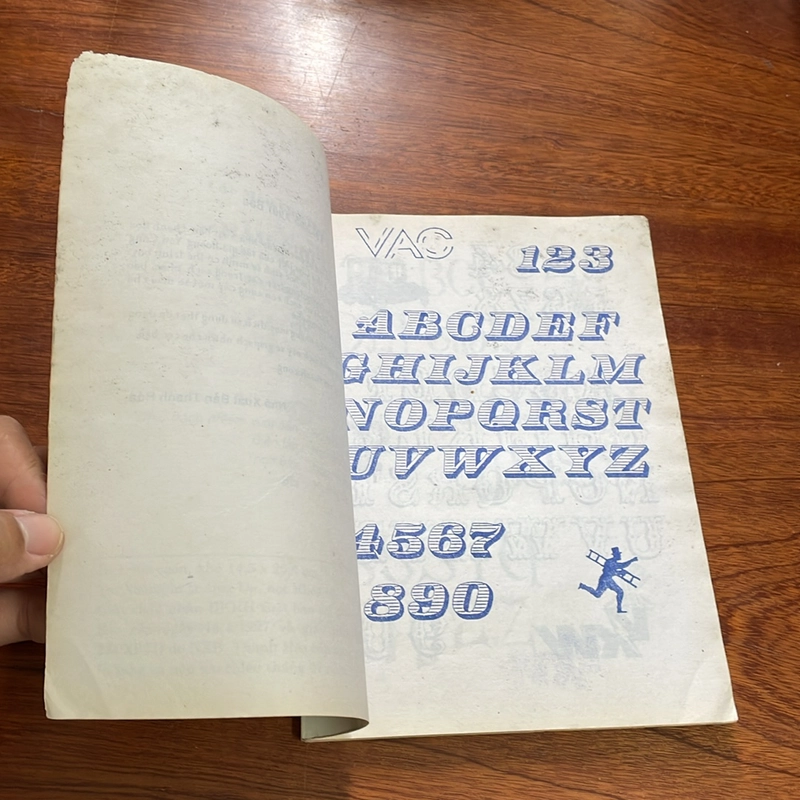 VAC
123
ABCDEF
GHIJKLM
NOPQRST
UVWXYZ
4567
890